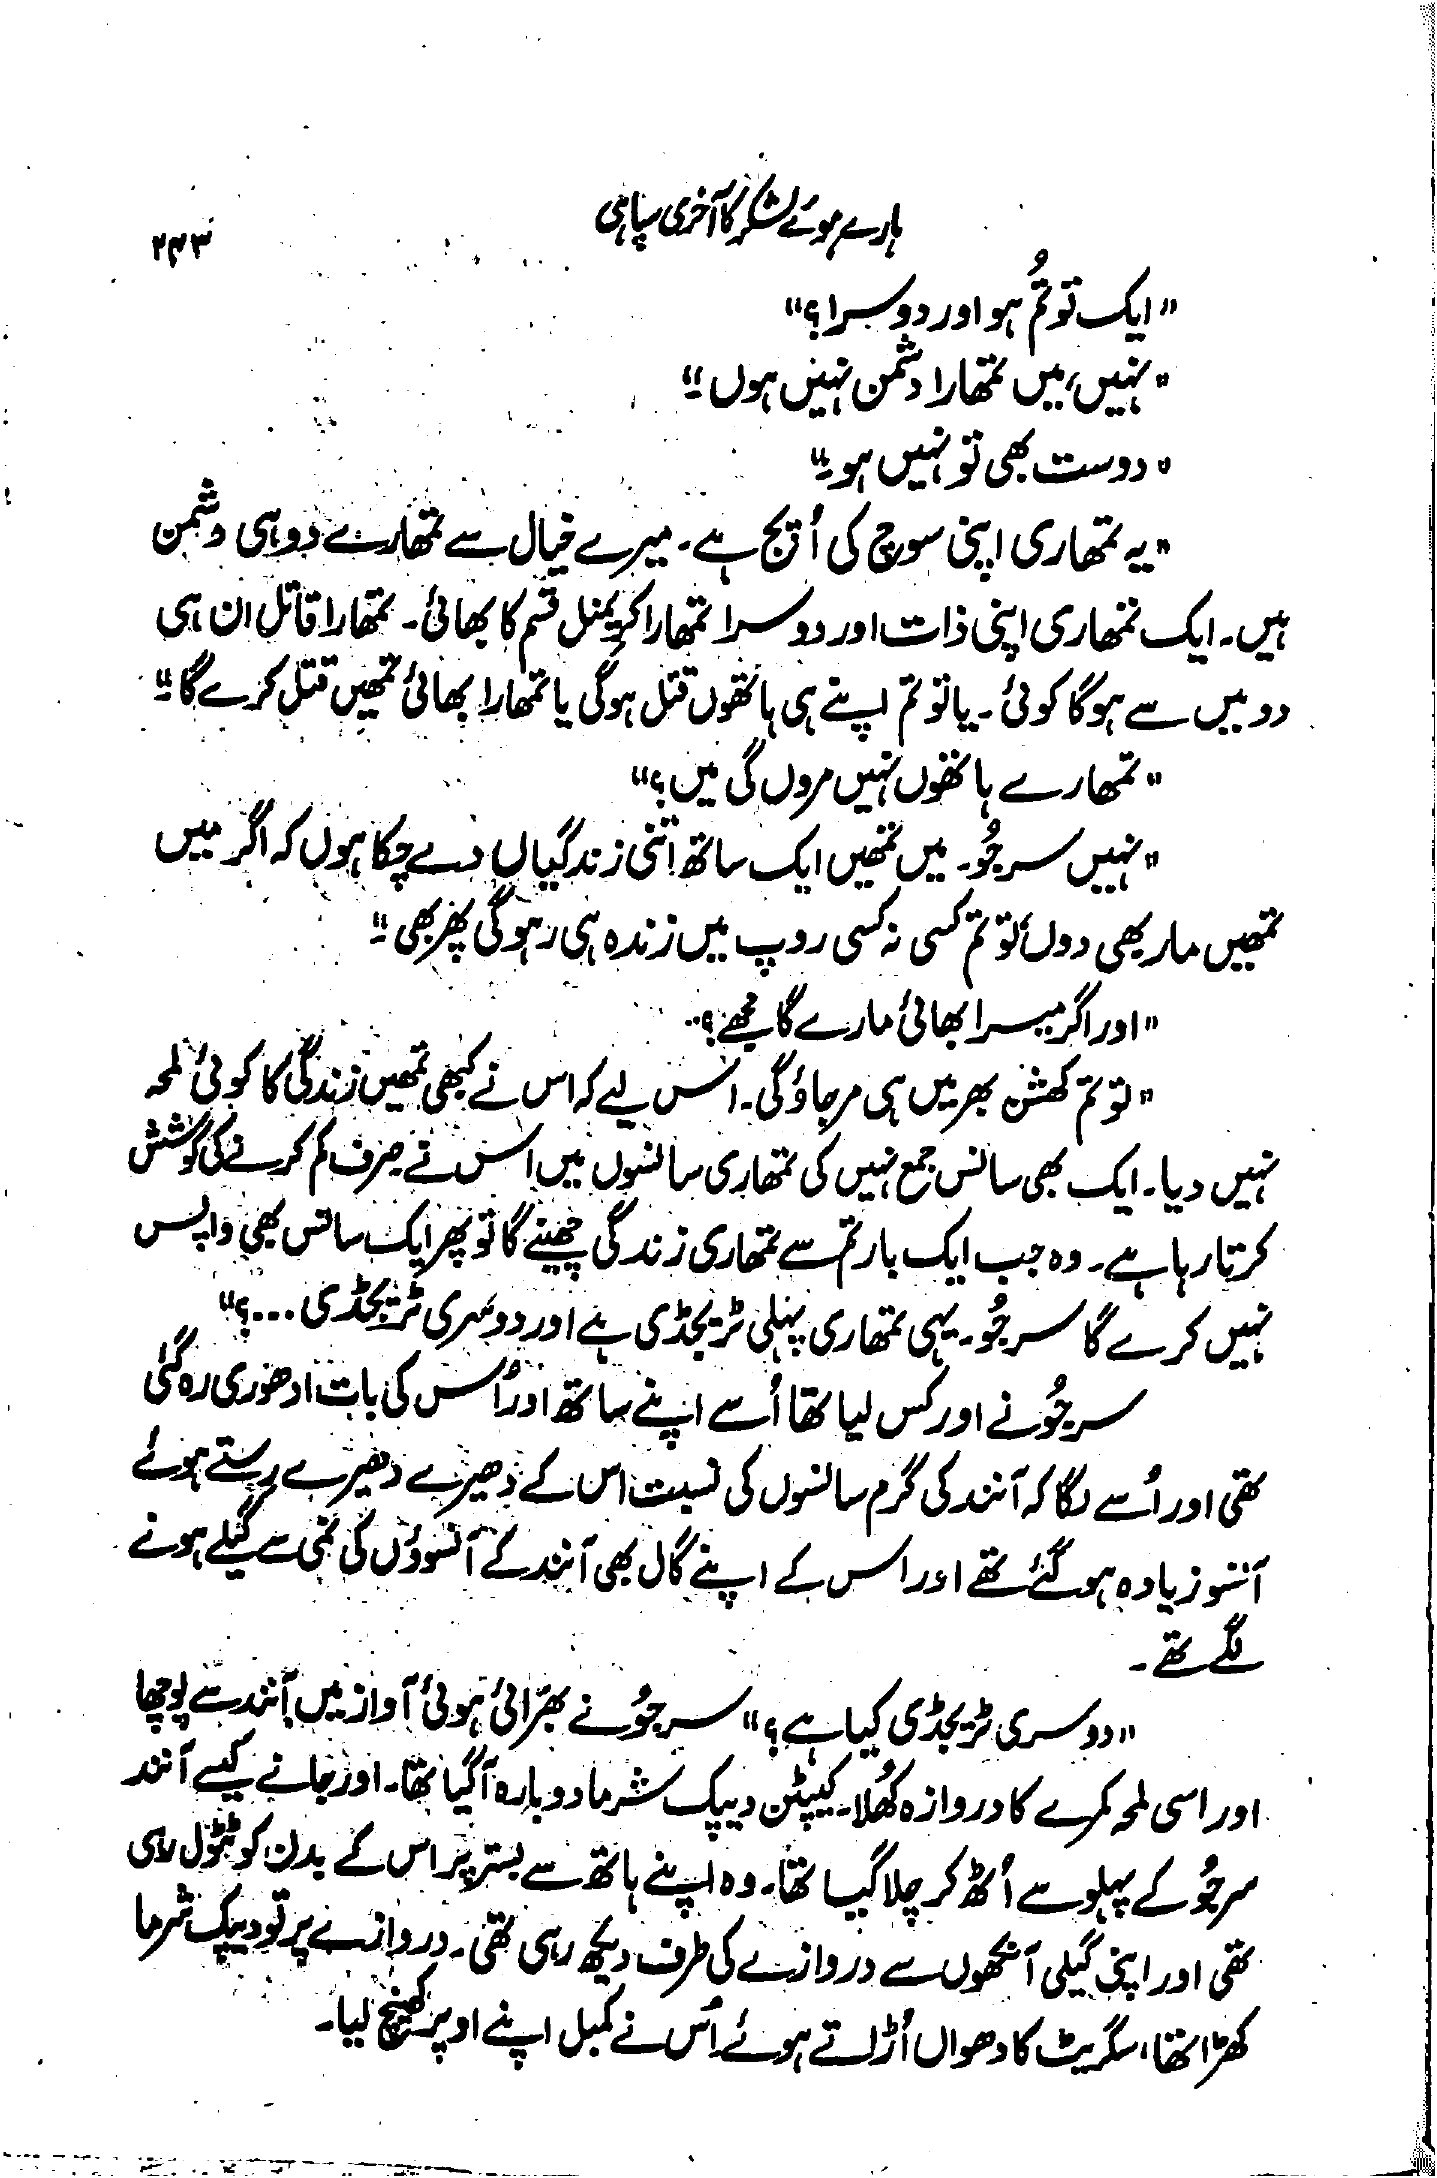 ہارے ہوئے لشکر کا آخری سپاہی
۲۴۳
"ایک تو تُم ہو اور دوسرا؟"
"نہیں، میں تمھارا دشمن نہیں ہوں۔"
"دوست بھی تو نہیں ہو۔"
"یہ تمھاری اپنی سوچ کی اُتج ہے۔ میرے خیال سے تمھارے دو ہی دشمن
ہیں۔ ایک تمھاری اپنی ذات اور دوسرا تمھارا کریمنل قسم کا بھائی۔ تمھارا قاتل ان ہی
دو میں سے ہو گا کوئی۔ یا تو تم اپنے ہی ہاتھوں قتل ہو گی یا تمھارا بھائی تمھیں قتل کرے گا۔"
"تمھارے ہاتھوں نہیں مروں گی میں؟"
"نہیں سرجُو۔ میں تمھیں ایک ساتھ اتنی زندگیاں دے چکا ہوں کہ اگر میں
تمھیں مار بھی دوں تو تم کسی نہ کسی روپ میں زندہ ہی رہو گی پھر بھی۔"
"اور اگر میرا بھائی مارے گا مجھے؟"
"تو تم کھشن بھر میں ہی مر جاؤ گی۔ اس لیے کہ اس نے کبھی تمھیں زندگی کا کوئی لمحہ
نہیں دیا۔ ایک بھی سانس جمع نہیں کی تمھاری سانسوں میں اس نے صرف کم کرنے کی کوشش
کرتا رہا ہے۔ وہ جب ایک بار تم سے تمھاری زندگی چھینے گا تو پھر ایک سانس بھی واپس
نہیں کرے گا سرجُو۔ یہی تمھاری پہلی ٹریجڈی ہے اور دوسری ٹریجڈی ...؟"
سرجُو نے اور کس لیا تھا اُسے اپنے ساتھ اور اُس کی بات ادھوری رہ گئی
تھی اور اُسے لگا کہ آنند کی گرم سانسوں کی نسبت اس کے دھیرے دھیرے رستے ہوئے
آنسو زیادہ ہو گئے تھے اور اس کے اپنے گال بھی آنند کے آنسوؤں کی نمی سے گیلے ہونے
لگے تھے۔
"دوسری ٹریجڈی کیا ہے؟" سرجُو نے بھرّائی ہوئی آواز میں آنند سے پوچھا
اور اسی لمحہ کمرے کا دروازہ کھُلا۔ کیپٹن دیپک شرما دوبارہ آ گیا تھا۔ اور جانے کیسے آنند
سرجُو کے پہلو سے اُٹھ کر چلا گیا تھا۔ وہ اپنے ہاتھ سے بستر پر اس کے بدن کو ٹٹول رہی
تھی اور اپنی گیلی آنکھوں سے دروازے کی طرف دیکھ رہی تھی۔ دروازے پر تو دیپک شرما
کھڑا تھا، سگریٹ کا دھواں اُڑاتے ہوئے اُس نے کمبل اپنے اوپر کھینچ لیا۔